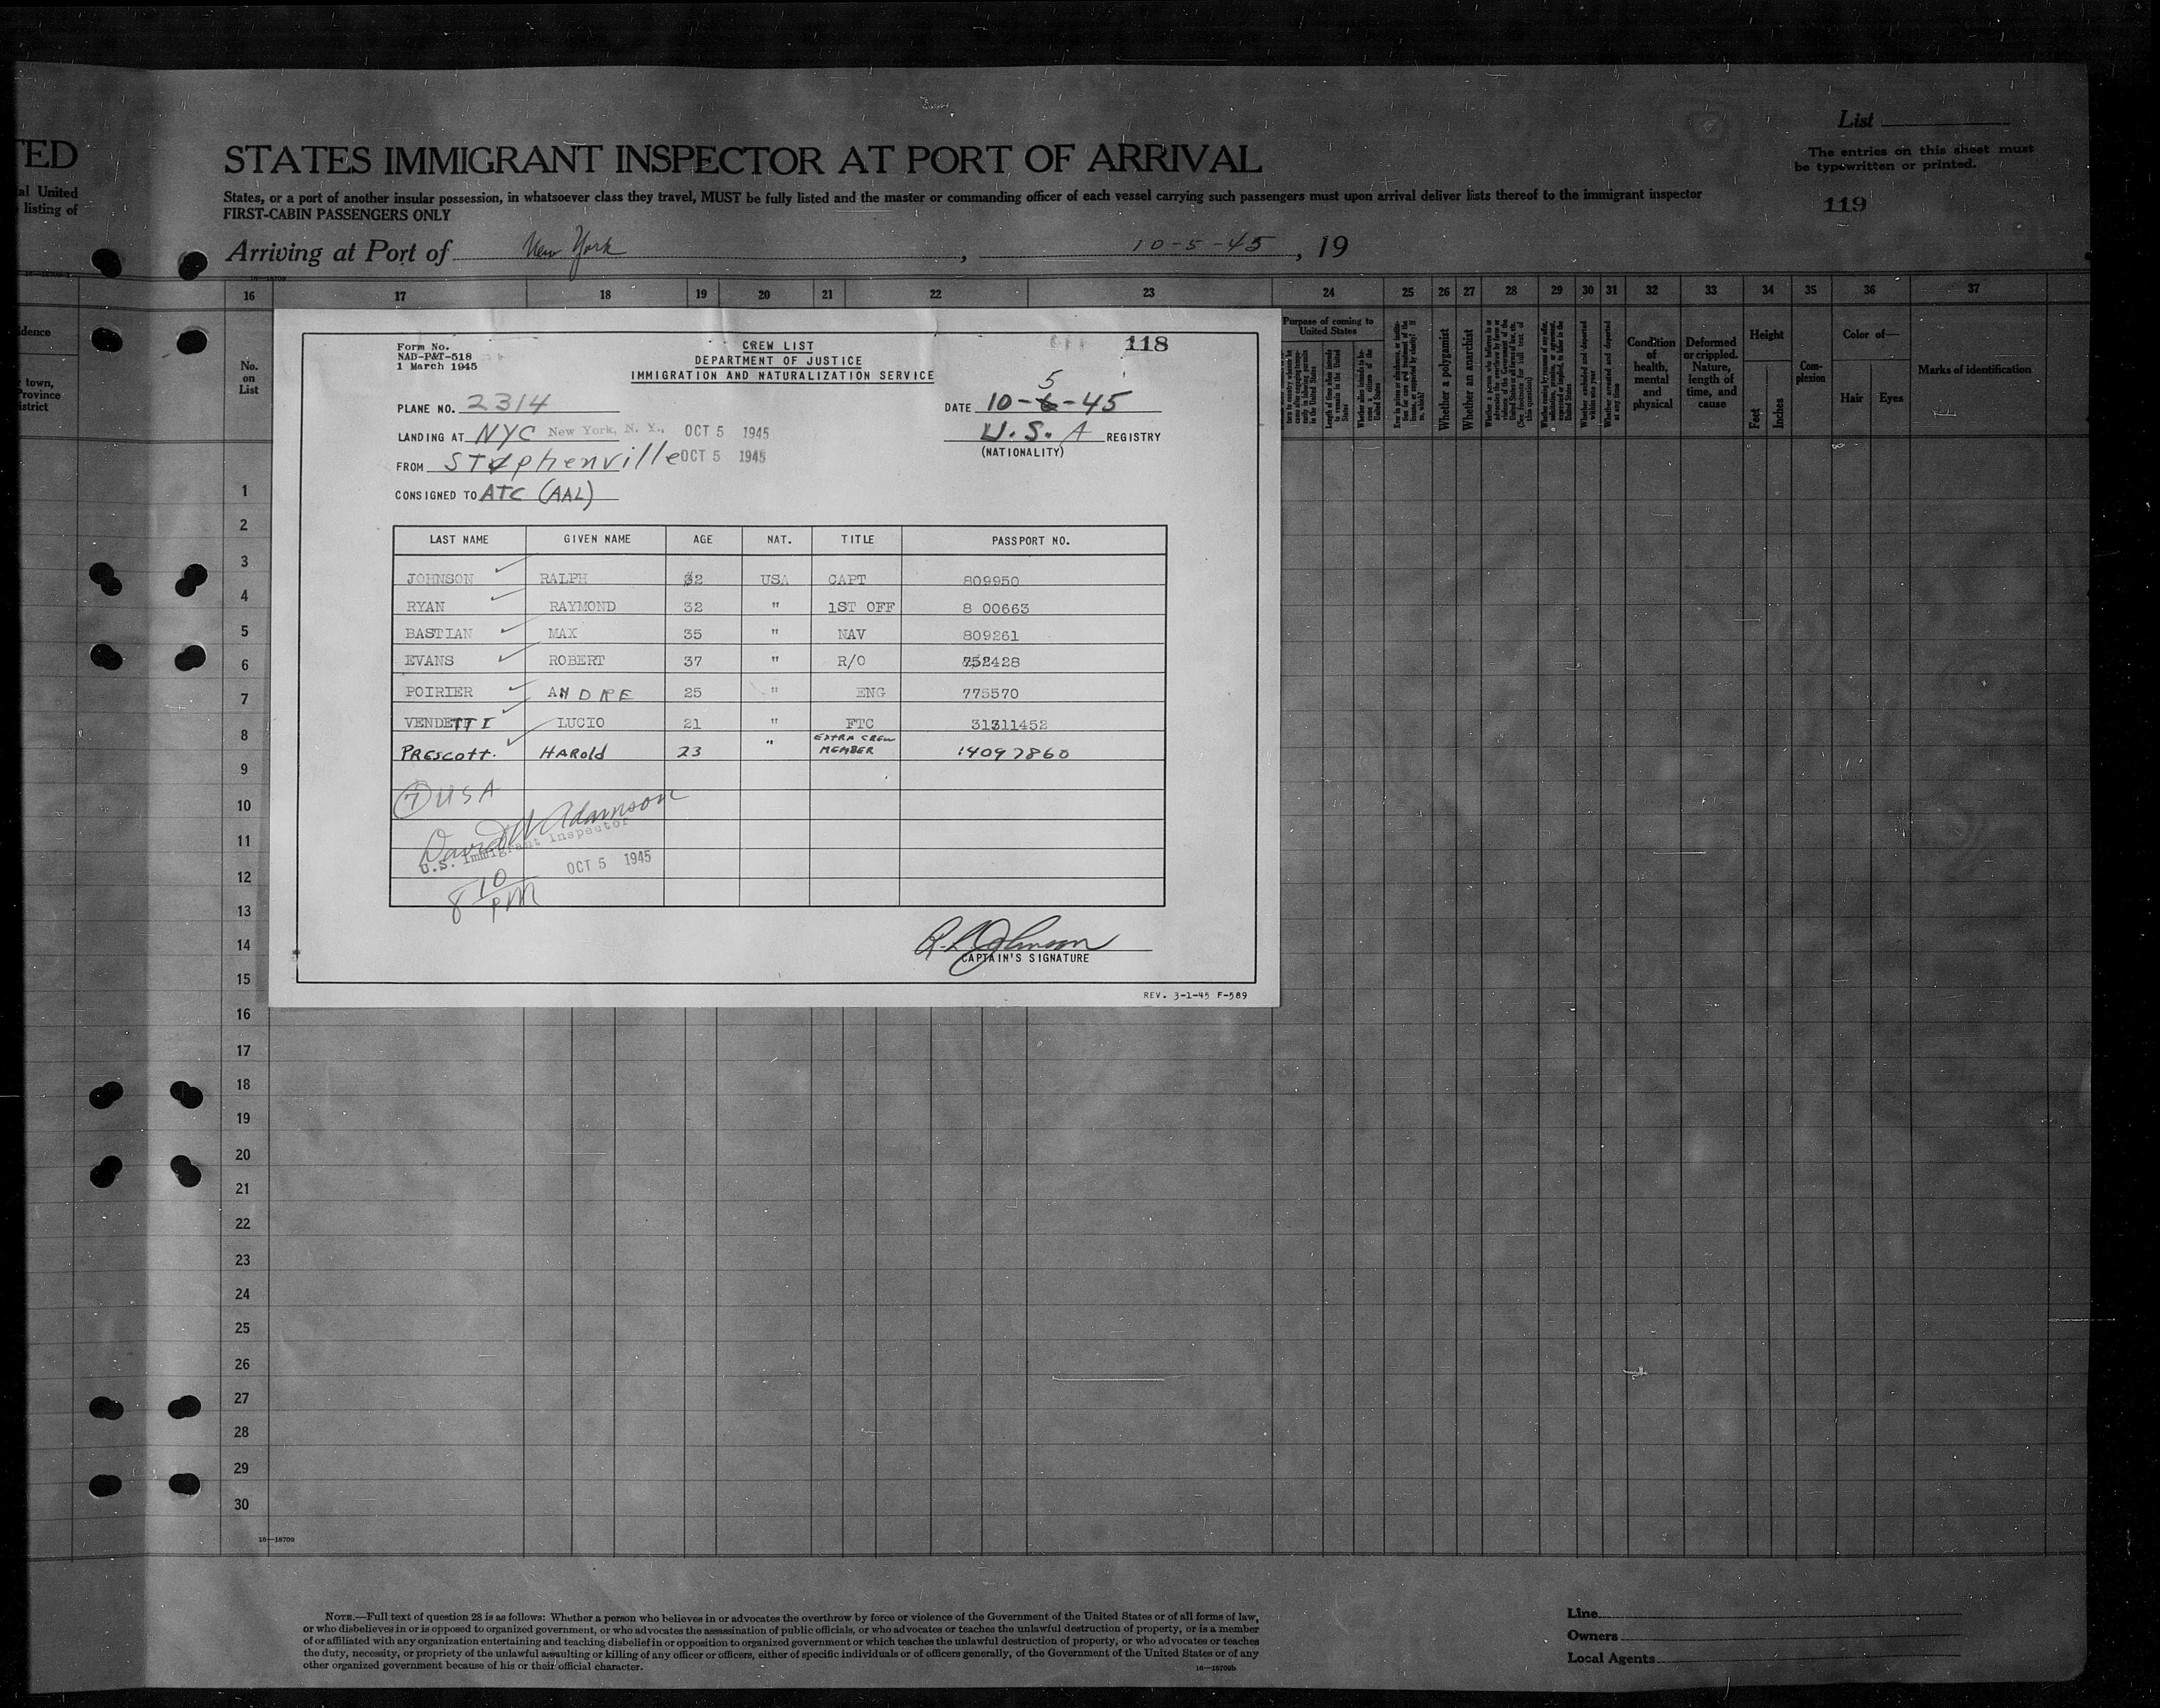 TED
al United
listing of
List
STATES IMMIGRANT INSPECTOR AT PORT OF ARRIVAL
The entries on this sheet must
be typewritten or printed.
States, or a port of another insular possession, in whatsoever class they travel, MUST be fully listed and the master or commanding officer of each vessel carrying such passengers must upon arrival deliver lists thereof to the immigrant inspector
FIRST-CABIN PASSENGERS ONLY
119
Arriving at Port of New York, 10-5-45, 19
16 17 18 19 20 21 22 23 24 25 26 27 28 29 30 31 32 33 34 35 36 37
idence
town,
Province
istrict
No.
on
List
Purpose of coming to
United States
Whether a polygamist
Whether an anarchist
Condition
of
health,
mental
and
physical
Deformed
or crippled.
Nature,
length of
time, and
cause
Height
Feet
Inches
Com-
plexion
Color of—
Hair
Eyes
Marks of identification
118
Form No.
NAD-P&T-518
1 March 1945
CREW LIST
DEPARTMENT OF JUSTICE
IMMIGRATION AND NATURALIZATION SERVICE
PLANE NO. 2314
DATE 10-5-45
LANDING AT NYC New York, N. Y., OCT 5 1945
U.S.A REGISTRY
(NATIONALITY)
FROM Stephenville OCT 5 1945
CONSIGNED TO ATC (AAL)
LAST NAME GIVEN NAME AGE NAT. TITLE PASSPORT NO.
JOHNSON RALPH 32 USA CAPT 809950
RYAN RAYMOND 32 " 1ST OFF 8 00663
BASTIAN MAX 35 " NAV 809261
EVANS ROBERT 37 " R/O 752428
POIRIER ANDRE 25 " ENG 775570
VENDETTI LUCIO 21 " FTC 31311452
PRESCOTT. HAROLD 23 " EXTRA CREW MEMBER 14097860
7 USA
David W Adamson
U.S. Immigrant Inspector
OCT 5 1945
8 10 PM
R. L. Johnson
CAPTAIN'S SIGNATURE
REV. 3-1-45 F-589
1
2
3
4
5
6
7
8
9
10
11
12
13
14
15
16
17
18
19
20
21
22
23
24
25
26
27
28
29
30
16—18709
NOTE.—Full text of question 28 is as follows: Whether a person who believes in or advocates the overthrow by force or violence of the Government of the United States or of all forms of law,
or who disbelieves in or is opposed to organized government, or who advocates the assassination of public officials, or who advocates or teaches the unlawful destruction of property, or is a member
of or affiliated with any organization entertaining and teaching disbelief in or opposition to organized government or which teaches the unlawful destruction of property, or who advocates or teaches
the duty, necessity, or propriety of the unlawful assaulting or killing of any officer or officers, either of specific individuals or of officers generally, of the Government of the United States or of any
other organized government because of his or their official character.
16—18709b
Line
Owners
Local Agents